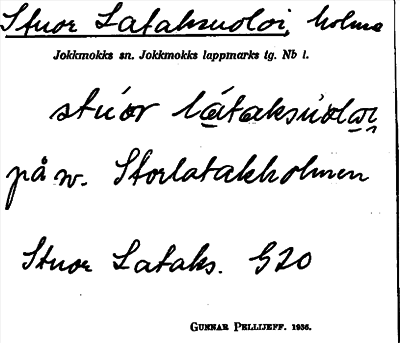 Stuor Lataksuoloi, holme
Jokkmokks sn. Jokkmokks lappmarks tg. Nb l.
stúor látaksúolọi
på w. Storlatakholmen
Stuor Lataks. G20
GUNNAR PELLIJEFF. 1936.